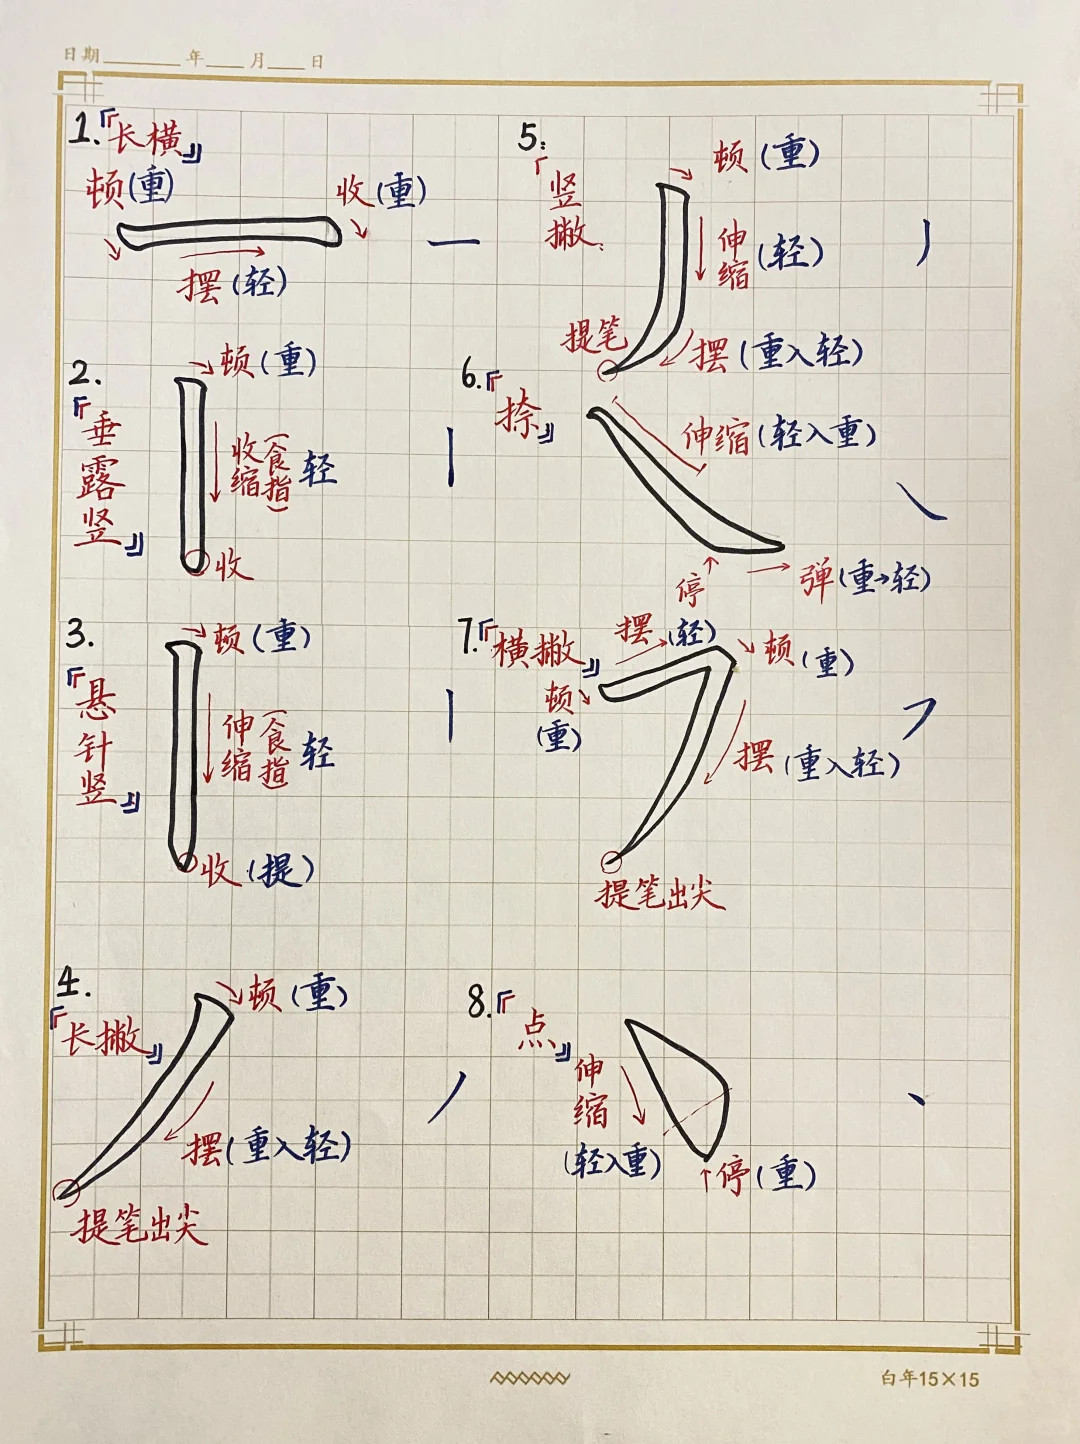 日期 年 月 日
1.『长横』
顿(重)
收(重)
摆(轻)
2.
『垂露竖』
顿(重)
收缩(食指)轻
收
3.
『悬针竖』
顿(重)
伸缩(食指)轻
收(提)
4.
『长撇』
顿(重)
摆(重入轻)
提笔出尖
5:
「竖撇:
顿(重)
伸缩(轻)
提笔
摆(重入轻)
6.『捺』
伸缩(轻入重)
停
弹(重→轻)
7.『横撇』
摆(轻)
顿(重)
顿(重)
摆(重入轻)
提笔出尖
8.『点』
伸缩
(轻入重)
停(重)
白年15×15